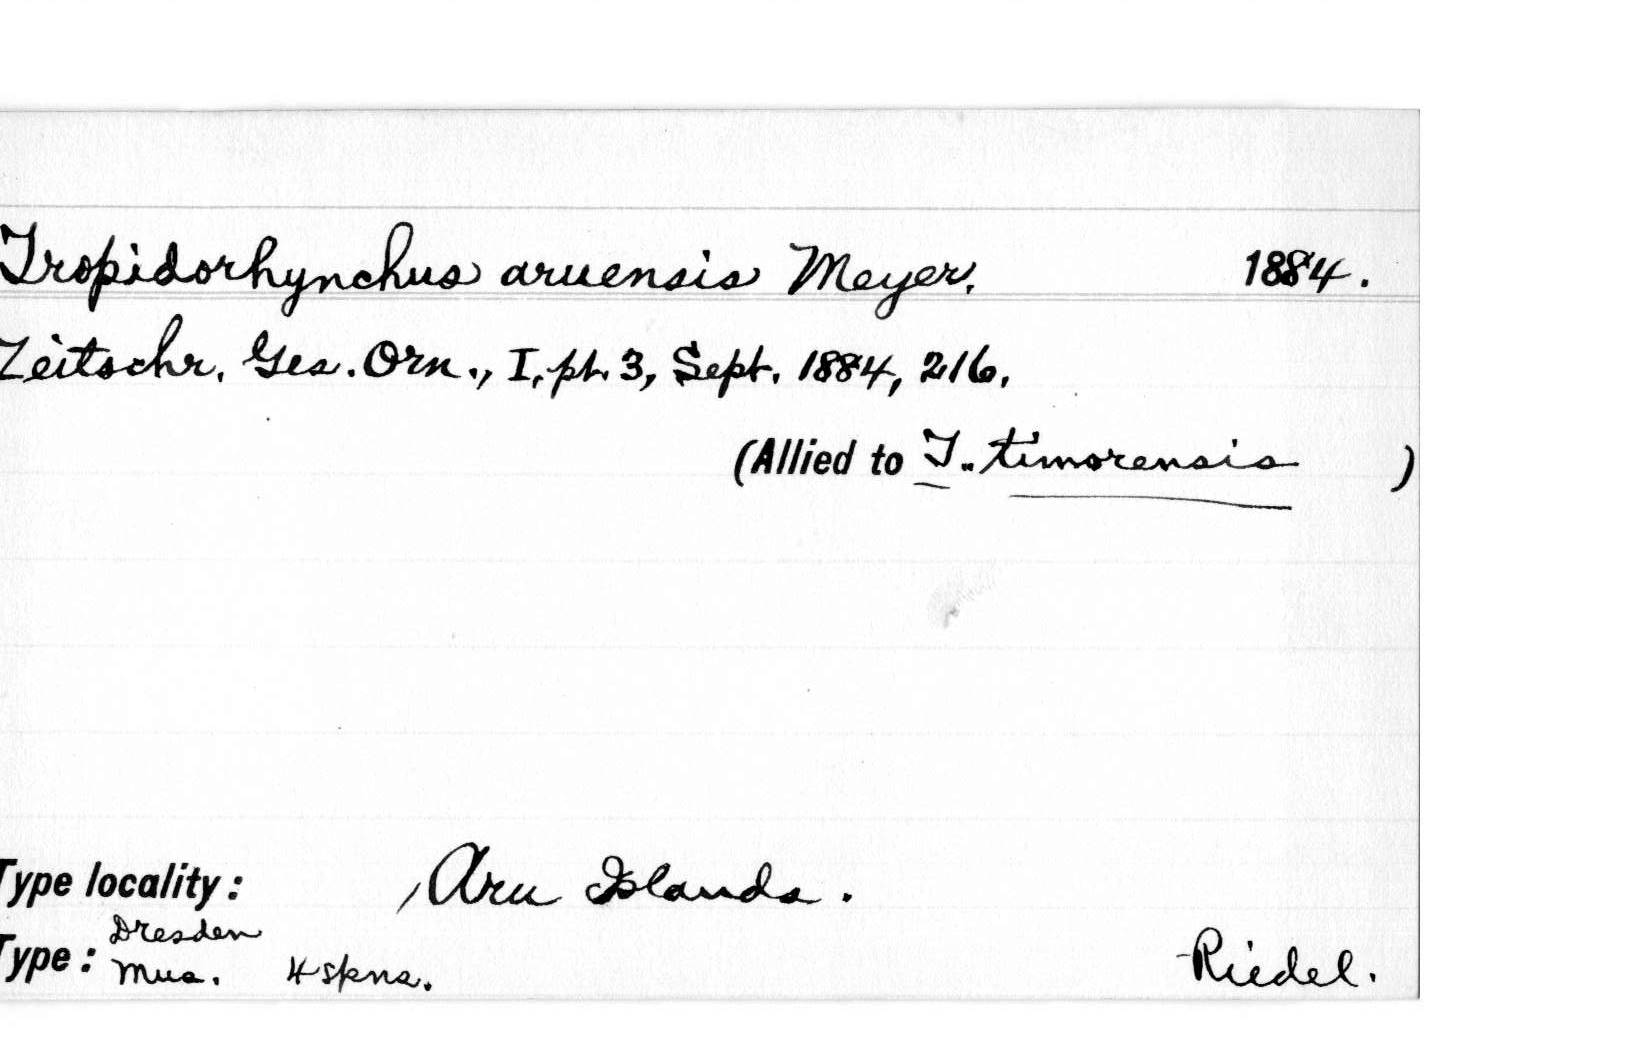 Tropidorhynchus aruensis Meyer. 1884.
Zeitschr. Ges. Orn., I, pt. 3, Sept. 1884, 216.
(Allied to T. timorensis )
Type locality: Aru Islands.
Type: Dresden Mus. 4 spns. Riedel.